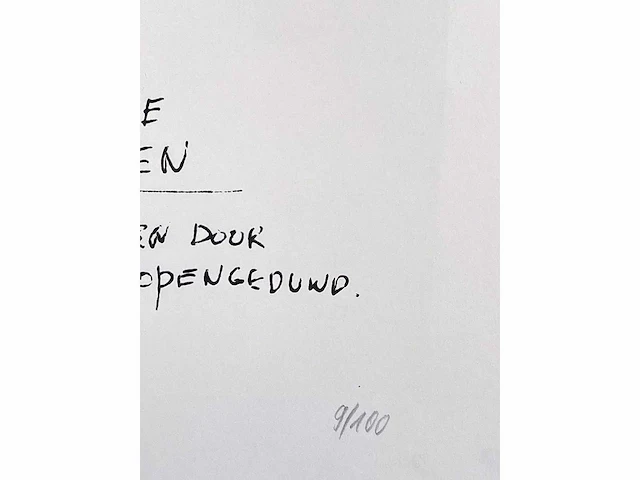 E
EN
EN DOOR
OPENGEDUWD.
9/100